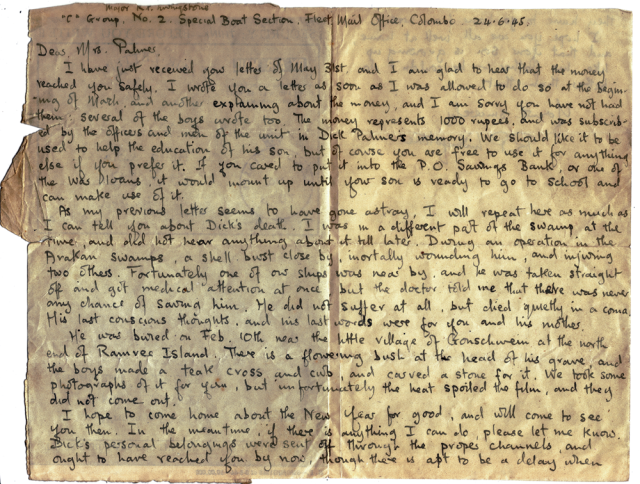 Major
"C" Group. No. 2. Special Boat Section, Fleet Mail Office, Colombo. 24.6.45.
Dear Mrs. Palmer,
I have just received your letter of May 31st, and I am glad to hear that the money
reached you safely. I wrote you a letter as soon as I was allowed to do so at the begin-
ning of March, and another explaining about the money, and I am sorry you have not had
them; several of the boys wrote too. The money represents 1000 rupees, and was subscrib-
ed by the officers and men of the unit in Dick Palmer's memory. We should like it to be
used to help the education of his son, but of course you are free to use it for anything
else if you prefer it. If you cared to put it into the P.O. Savings Bank, or one of
the War loans, it would mount up until your son is ready to go to school and
can make use of it.
As my previous letter seems to have gone astray, I will repeat here as much as
I can tell you about Dick's death. I was in a different part of the swamp, at the
time, and did not hear anything about it till later. During an operation in the
Arakan swamps, a shell burst close by, mortally wounding him, and injuring
two others. Fortunately one of our ships was near by, and he was taken straight
off and got medical attention at once, but the doctor told me that there was never
any chance of saving him. He did not suffer at all, but died quietly in a coma.
His last conscious thoughts, and his last words were for you and his mother.
He was buried on Feb. 10th near the little village of Gonschwein at the north
end of Ramree Island. There is a flowering bush at the head of his grave, and
the boys made a teak cross and curb and carved a stone for it. We took some
photographs of it for you, but unfortunately the heat spoiled the film, and they
did not come out.
I hope to come home about the New Year for good, and will come to see
you then. In the meantime, if there is anything I can do, please let me know.
Dick's personal belongings were sent off through the proper channels, and
ought to have reached you by now, though there is apt to be a delay when